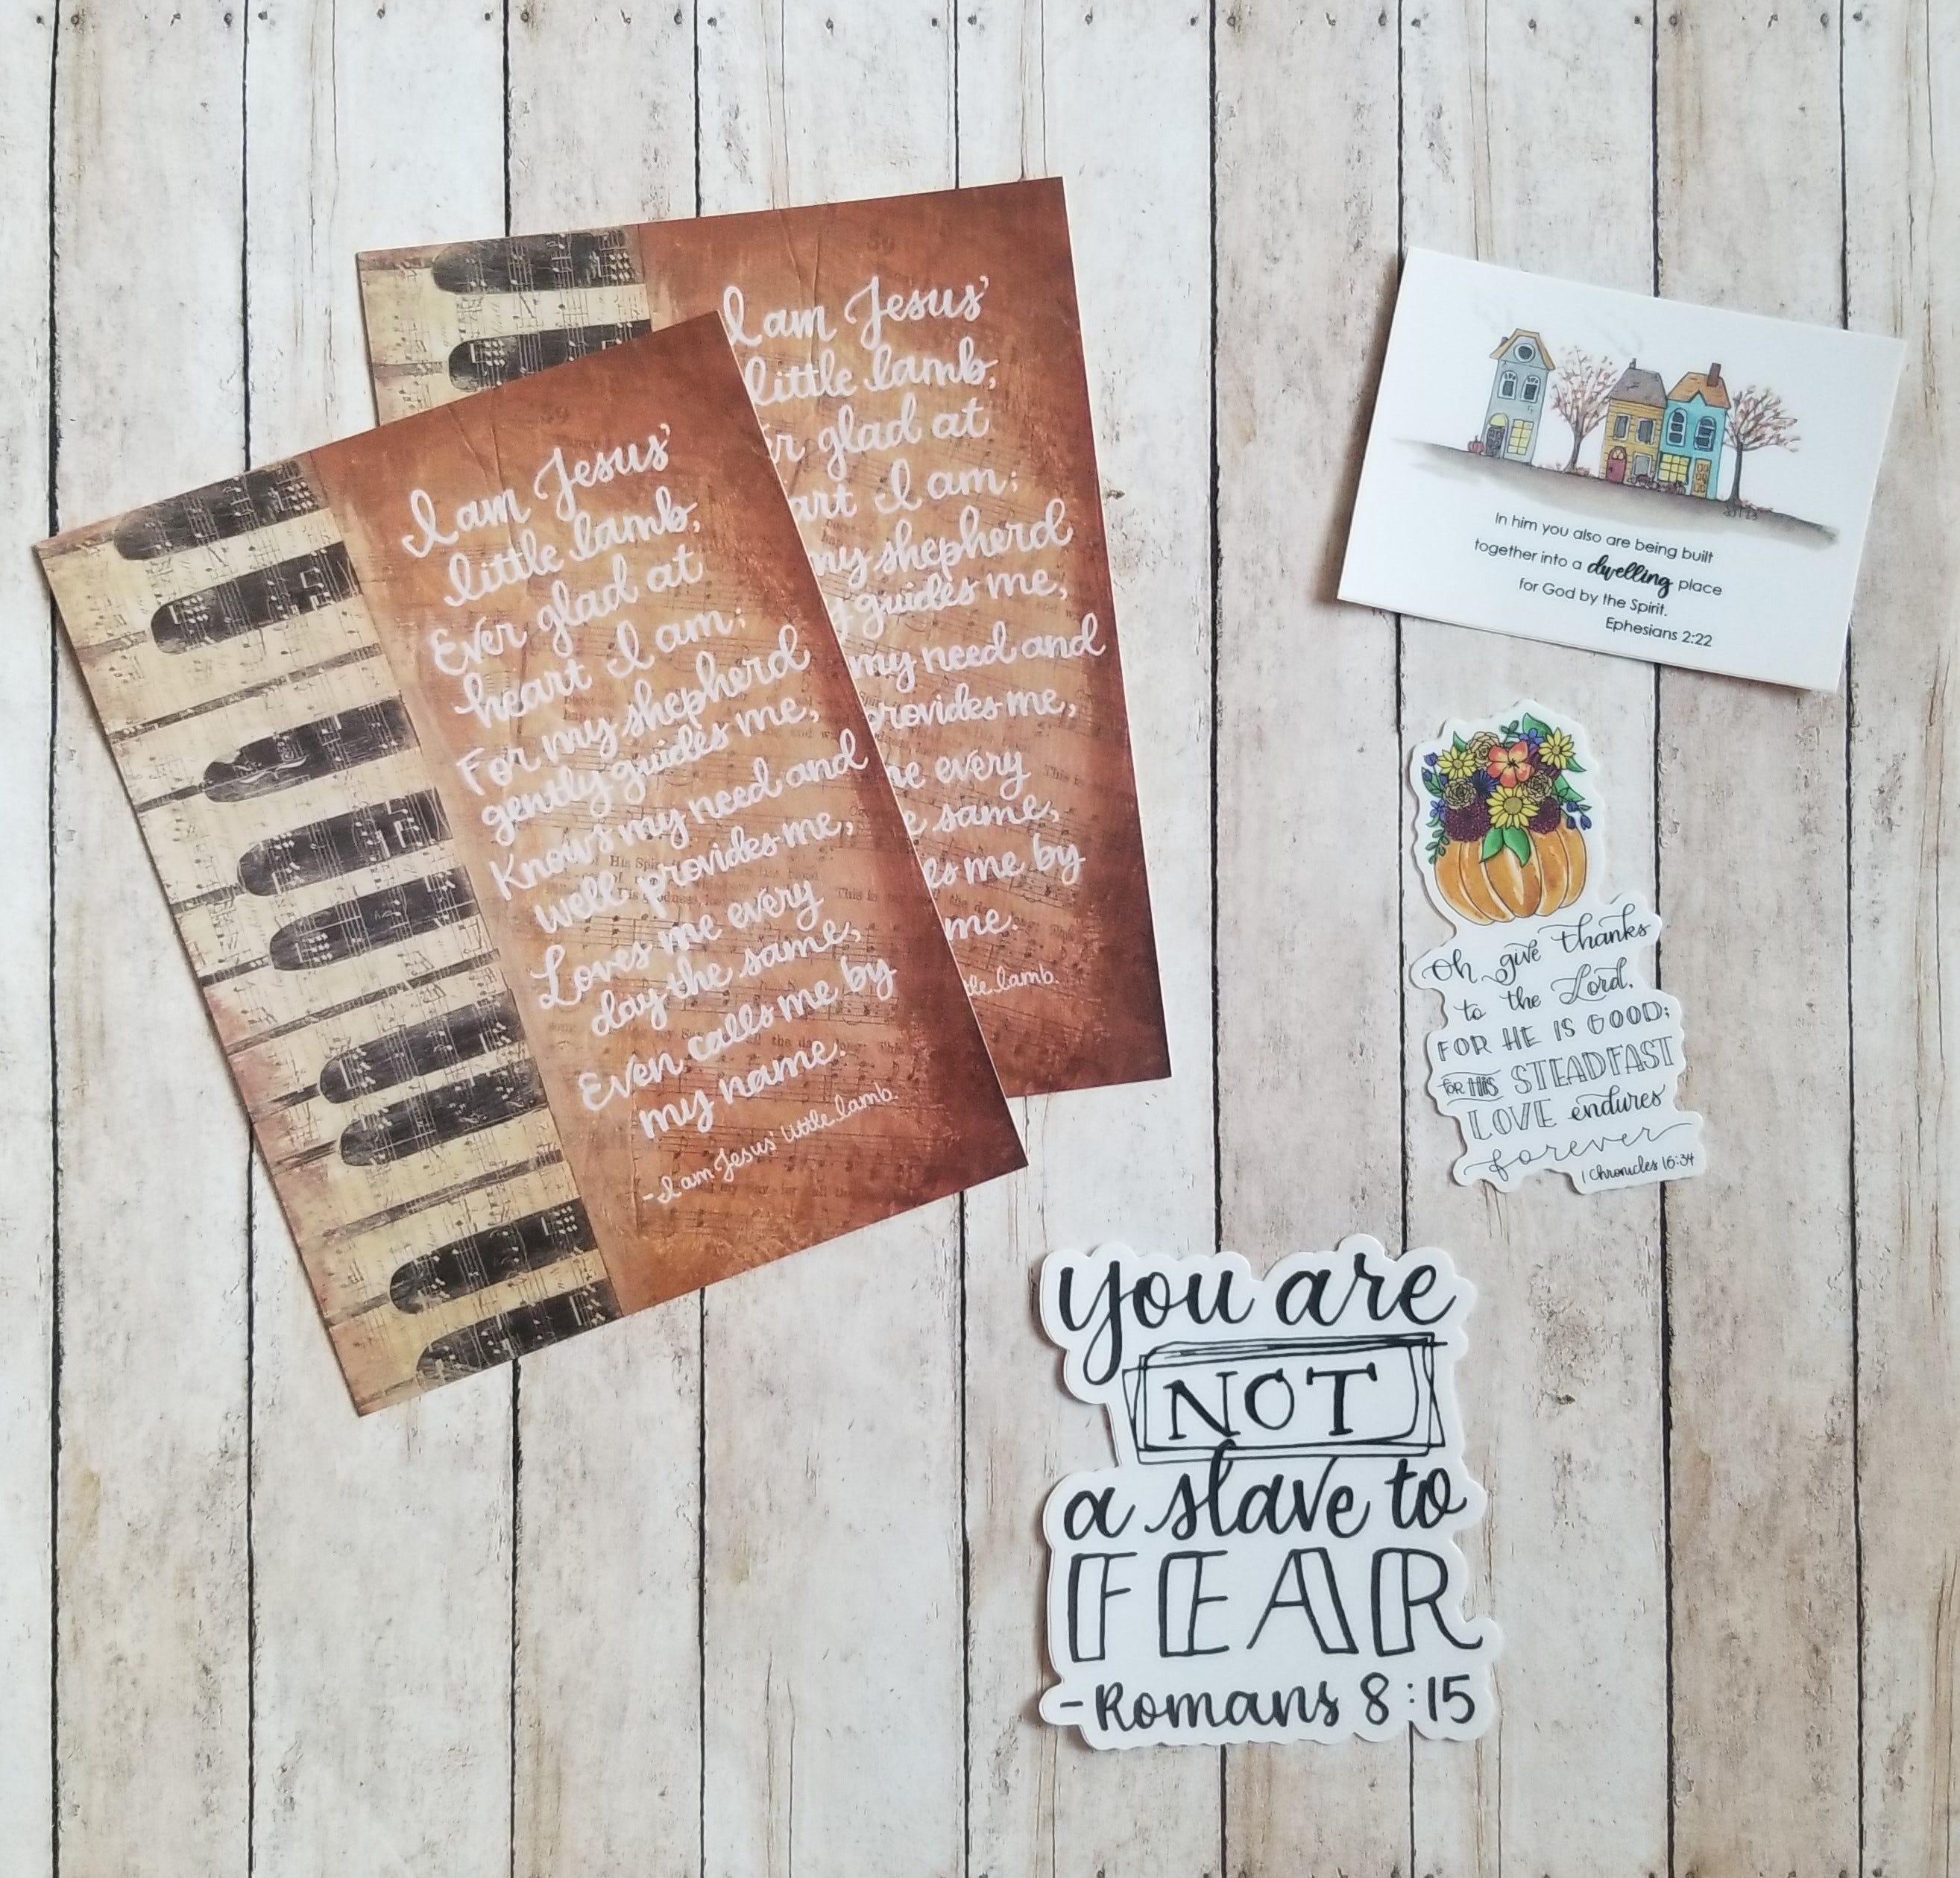 I am Jesus'
little lamb,
Ever glad at
heart I am;
For my shepherd
gently guides me,
Knows my need and
well provides me,
Loves me every
day the same,
Even calls me by
my name.
-I am Jesus' little lamb.
I am Jesus'
little lamb,
glad at
I am;
my shepherd
guides me,
my need and
provides me,
every
same,
me by
me.
lamb.
In him you also are being built
together into a dwelling place
for God by the Spirit.
Ephesians 2:22
Oh give thanks
to the Lord,
FOR HE IS GOOD;
for HIS STEADFAST
LOVE endures
forever
1 Chronicles 16:34
you are
NOT
a slave to
FEAR
-Romans 8:15